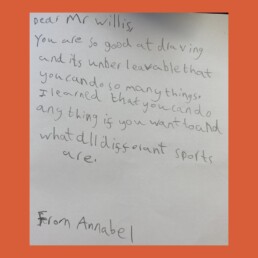 Dear Mr Willis,
You are so good at draving
and its unber leavable that
you can do so many things.
I learned that you can do
any thing if you want to and
what all differant sports
are.
From Annabel